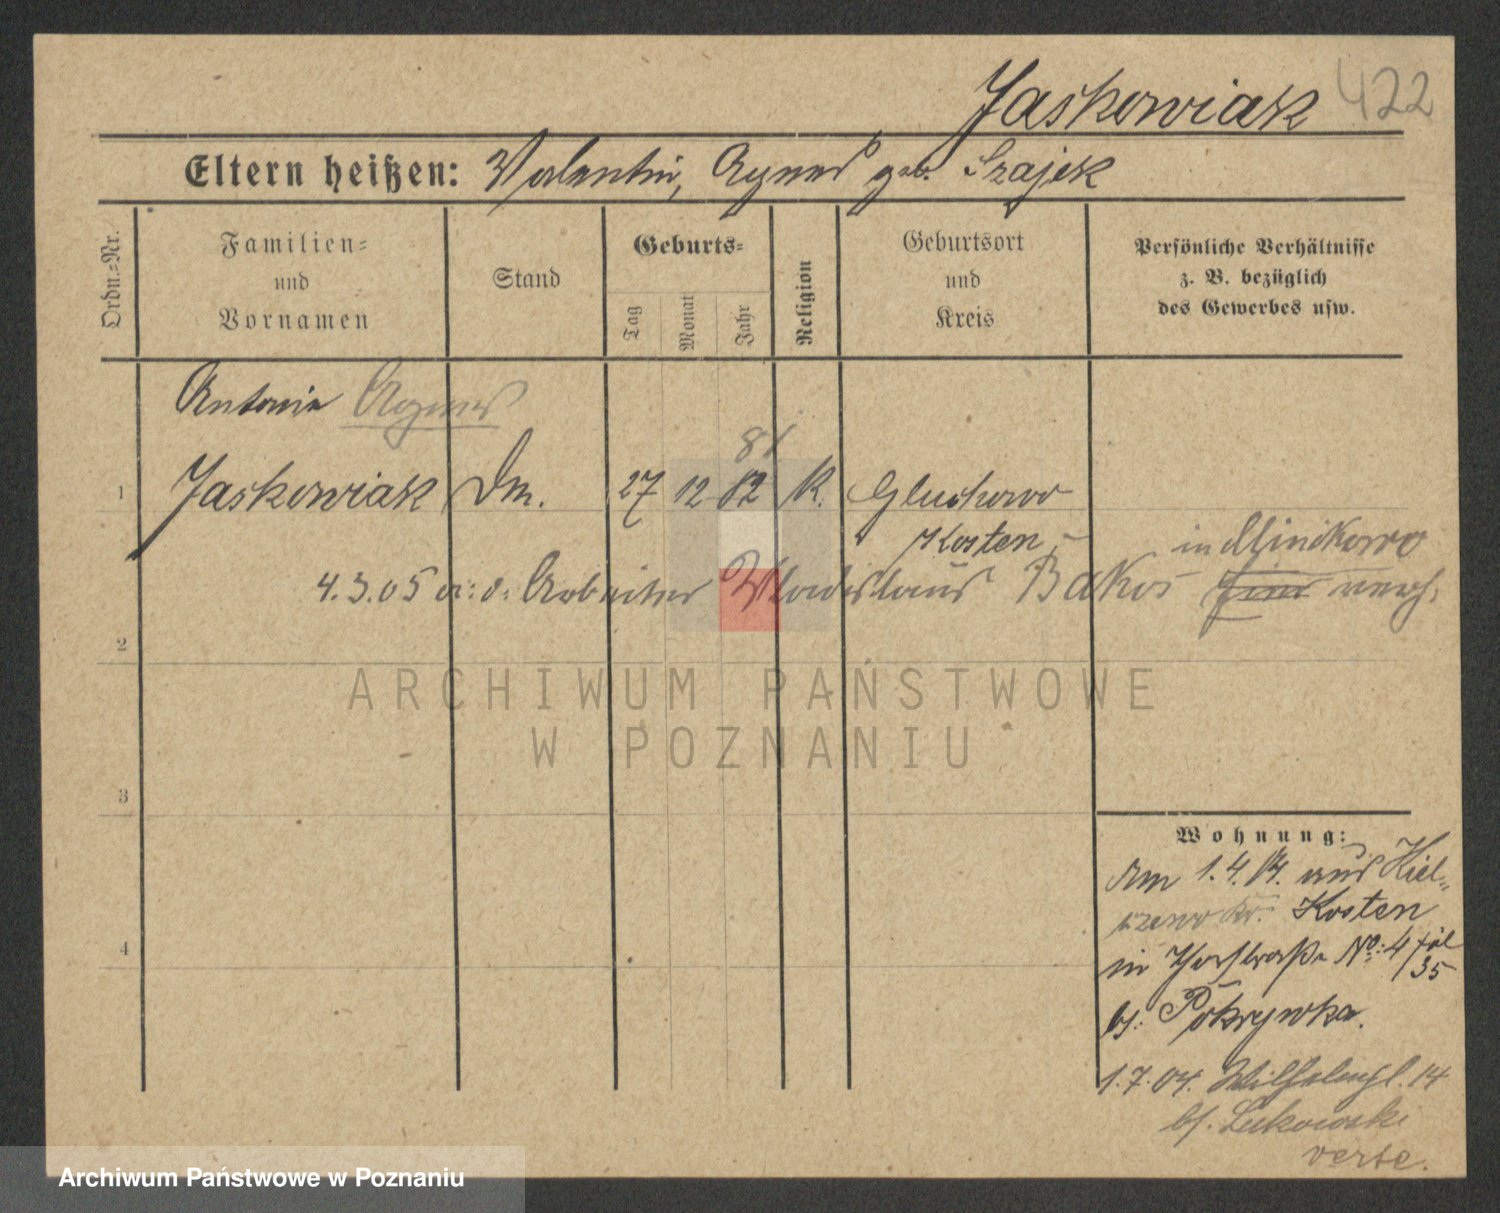 Jaskowiak 422
Eltern heißen: Valentin, Agnes geb. Szajek
Ordn.=Nr.
Familien=
und
Vornamen
Stand
Geburts=
Tag
Monat
Jahr
Religion
Geburtsort
und
Kreis
Persönliche Verhältnisse
z. B. bezüglich
des Gewerbes usw.
Antonie Agnes
81
1 Jaskowiak Dm. 27 12 82 K. Gluchowo
Kosten
in Minikowo
4.3.05 a: d: Arbeiter Wladislaus Bakos verh.
2
3
4
Wohnung:
Am 1.4.04. aus Kiel=
czewo Kr. Kosten
in Thorstraße No: 4
35
bj: Pokrywka.
1.7.04. Wilhelmstr. 14
bj. Lukowski
verte.
ARCHIWUM PAŃSTWOWE
W POZNANIU
Archiwum Państwowe w Poznaniu